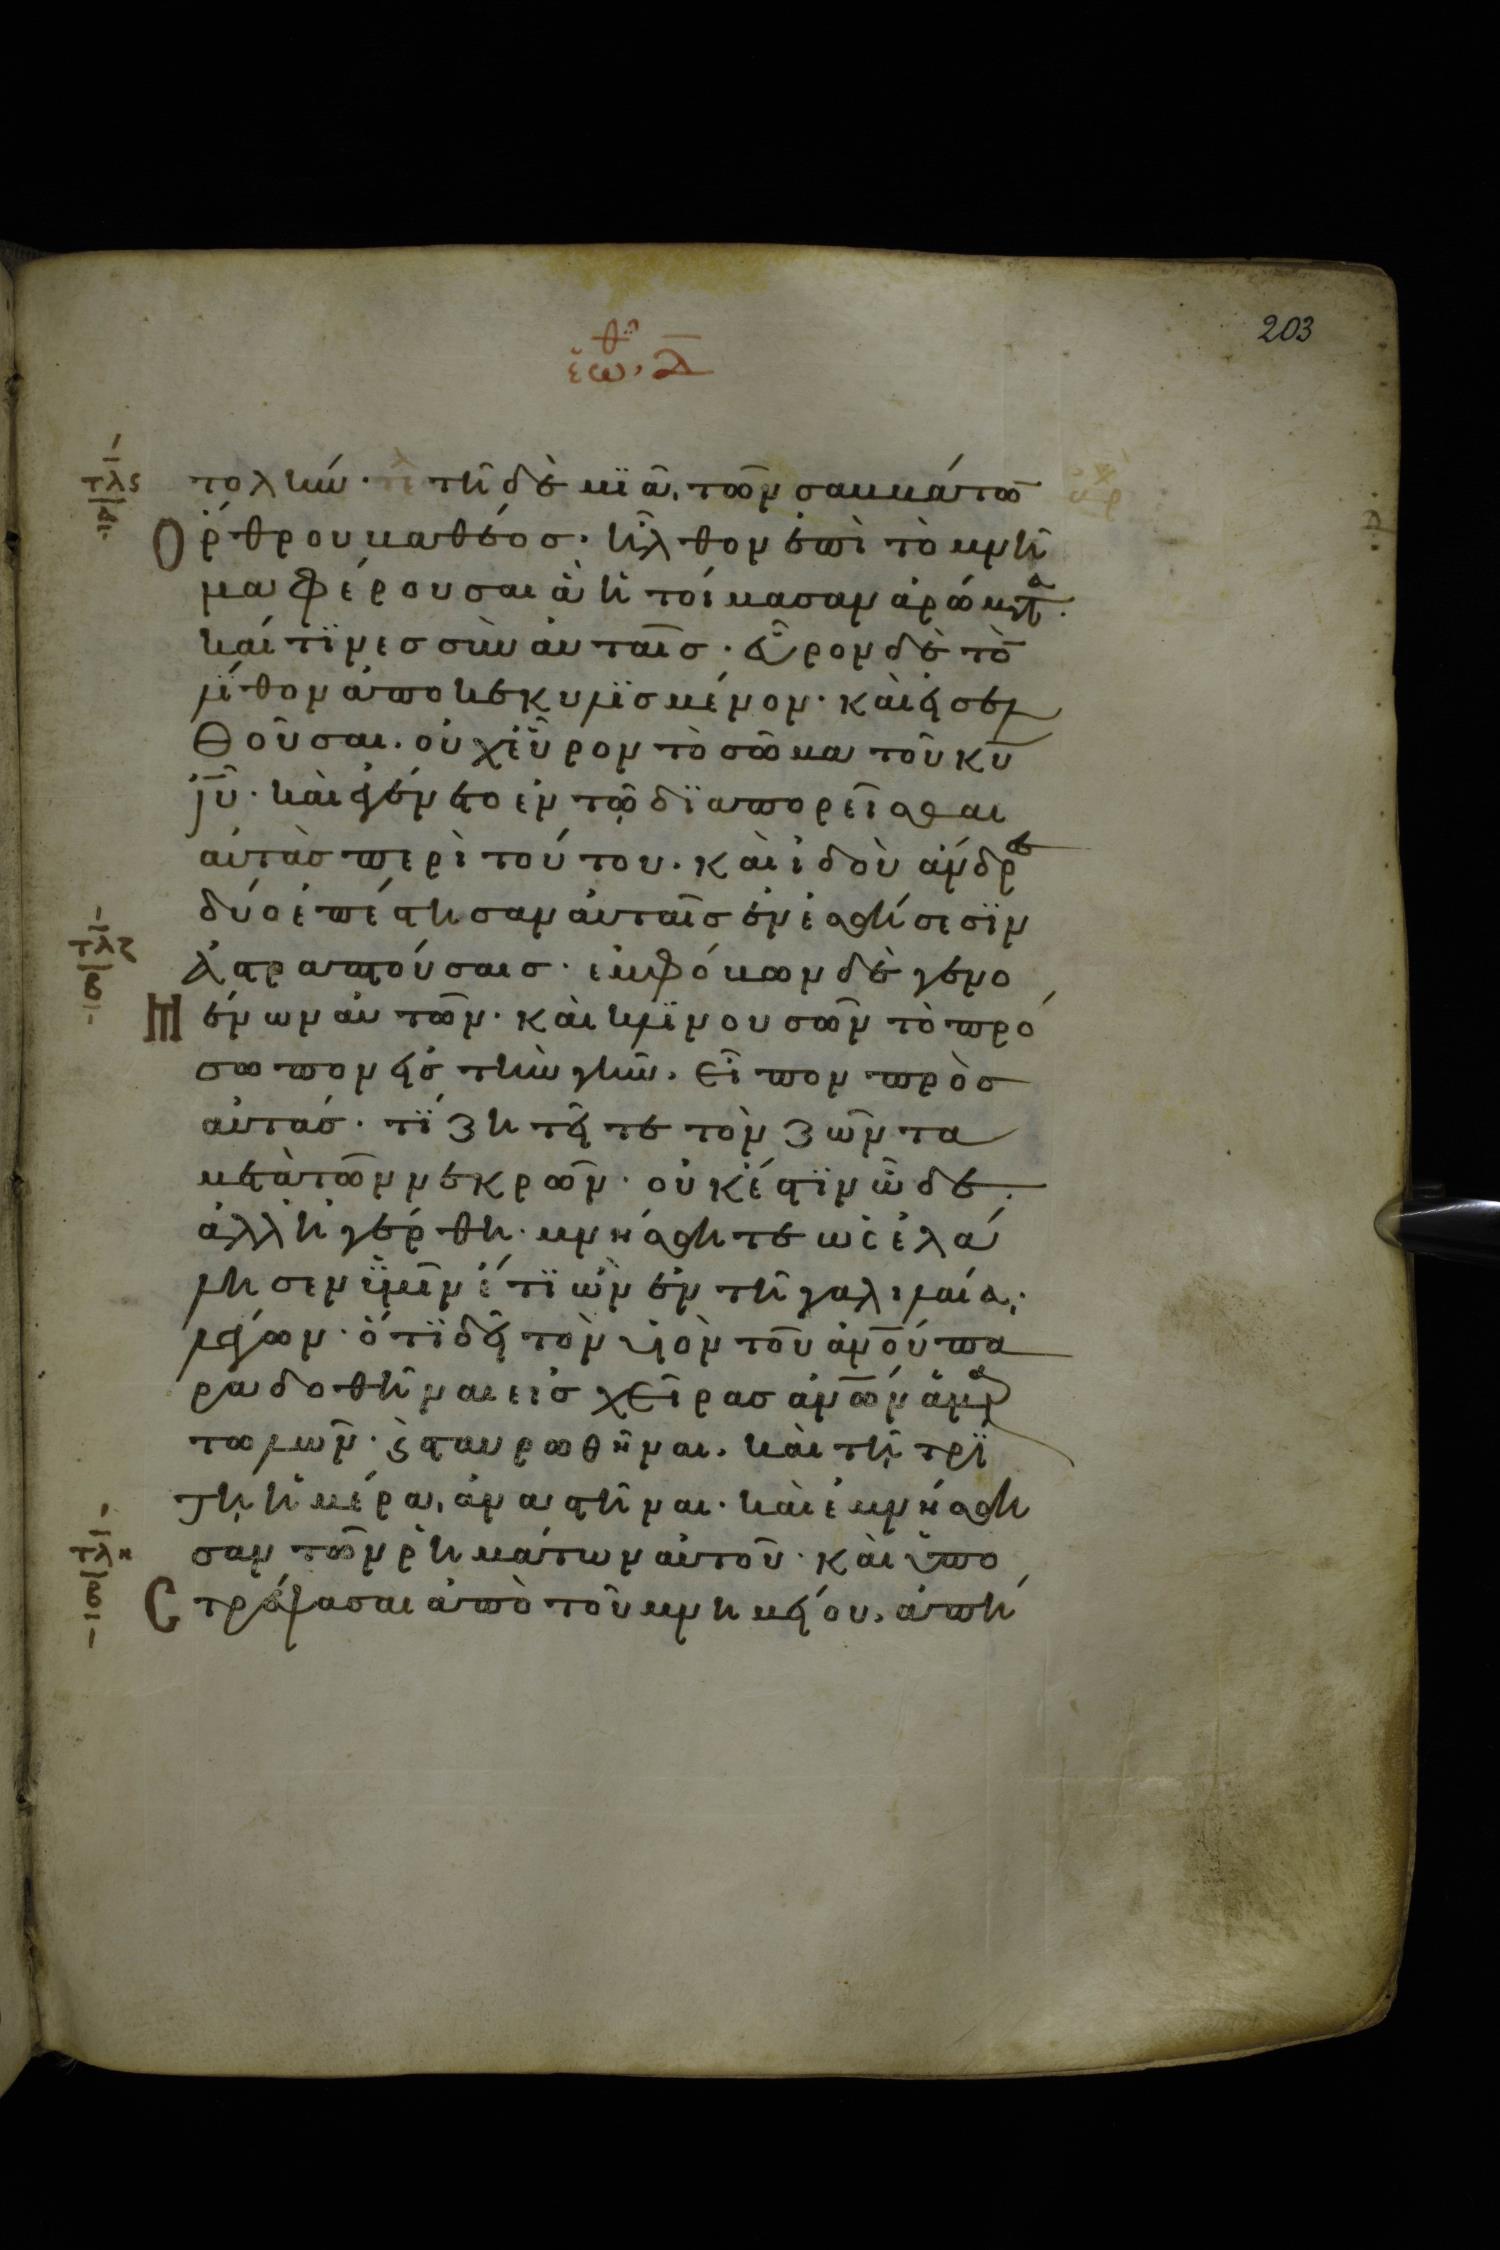 203
ἑωθ. Δ
τλς
τολήν· τῆ δὲ μϊᾶ, τῶν σαμμάτω
Ὄρθρου βαθέος· ἦλθον ἐπὶ τὸ μνῆ
μα φέρουσαι ἃ ἡτοίμασαν ἀρώματα.
καί τϊνες σὺν αὐταῖς· εὗρον δὲ τὸ
λίθον ἀποκεκυλϊσμένον· καὶ εἰσελ
θοῦσαι. οὐχ εὗρον τὸ σῶμα τοῦ κυ
ἰῦ· καὶ ἐγένετο ἐν τῶ δϊαπορεῖσθαι
αὐτὰς περὶ τούτου. καὶ ἰδοὺ ἄνδρες
δύο ἐπέστησαν αὐταῖς ἐν ἐσθήσεσϊν
τλζ
β
ἀστραπτούσαις· ἐμφόβων δὲ γενο
μένων αὐτῶν· καὶ κλϊνουσῶν τὸ πρό
σωπον εἰς τὴν γῆν. εἶπον πρὸς
αὐτάς· τϊ ζητεῖτε τὸν ζῶντα
μετὰ τῶν νεκρῶν· οὐκ ἔστϊν ὧδε.
ἀλλ ἠγέρθη· μνήσθητε ὡς ἐλά
λησεν ϋμῖν ἔτϊ ὢν ἐν τῆ γαλιλαία,·
λέγων· ὅτϊ δεῖ τὸν υἱὸν τοῦ ἀνού πα
ραδοθῆναι εἰς χεῖρας ἀνων ἁμαρ
τωλῶν· ϛαυρωθῆναι. καὶ τῆ τρϊ
τη ἡμέρα, ἀναστῆναι· καὶ ἐμνήσθη
τλη
β
σαν τῶν ῥημάτων αὐτοῦ· καὶ ὑπο
Στρέψασαι ἀπὸ τοῦ μνημείου, ἀπή